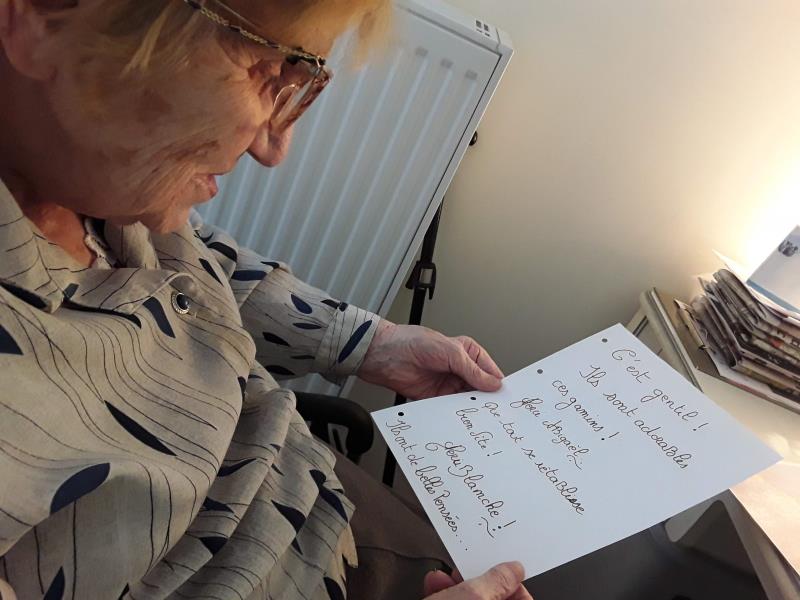 C'est gentil!
Ils sont adorables
ces gamins!
Lou Abgaël
que tat se rétablisse
bien vite!
Lou Blanche!
Ils ont de belles Pensées...